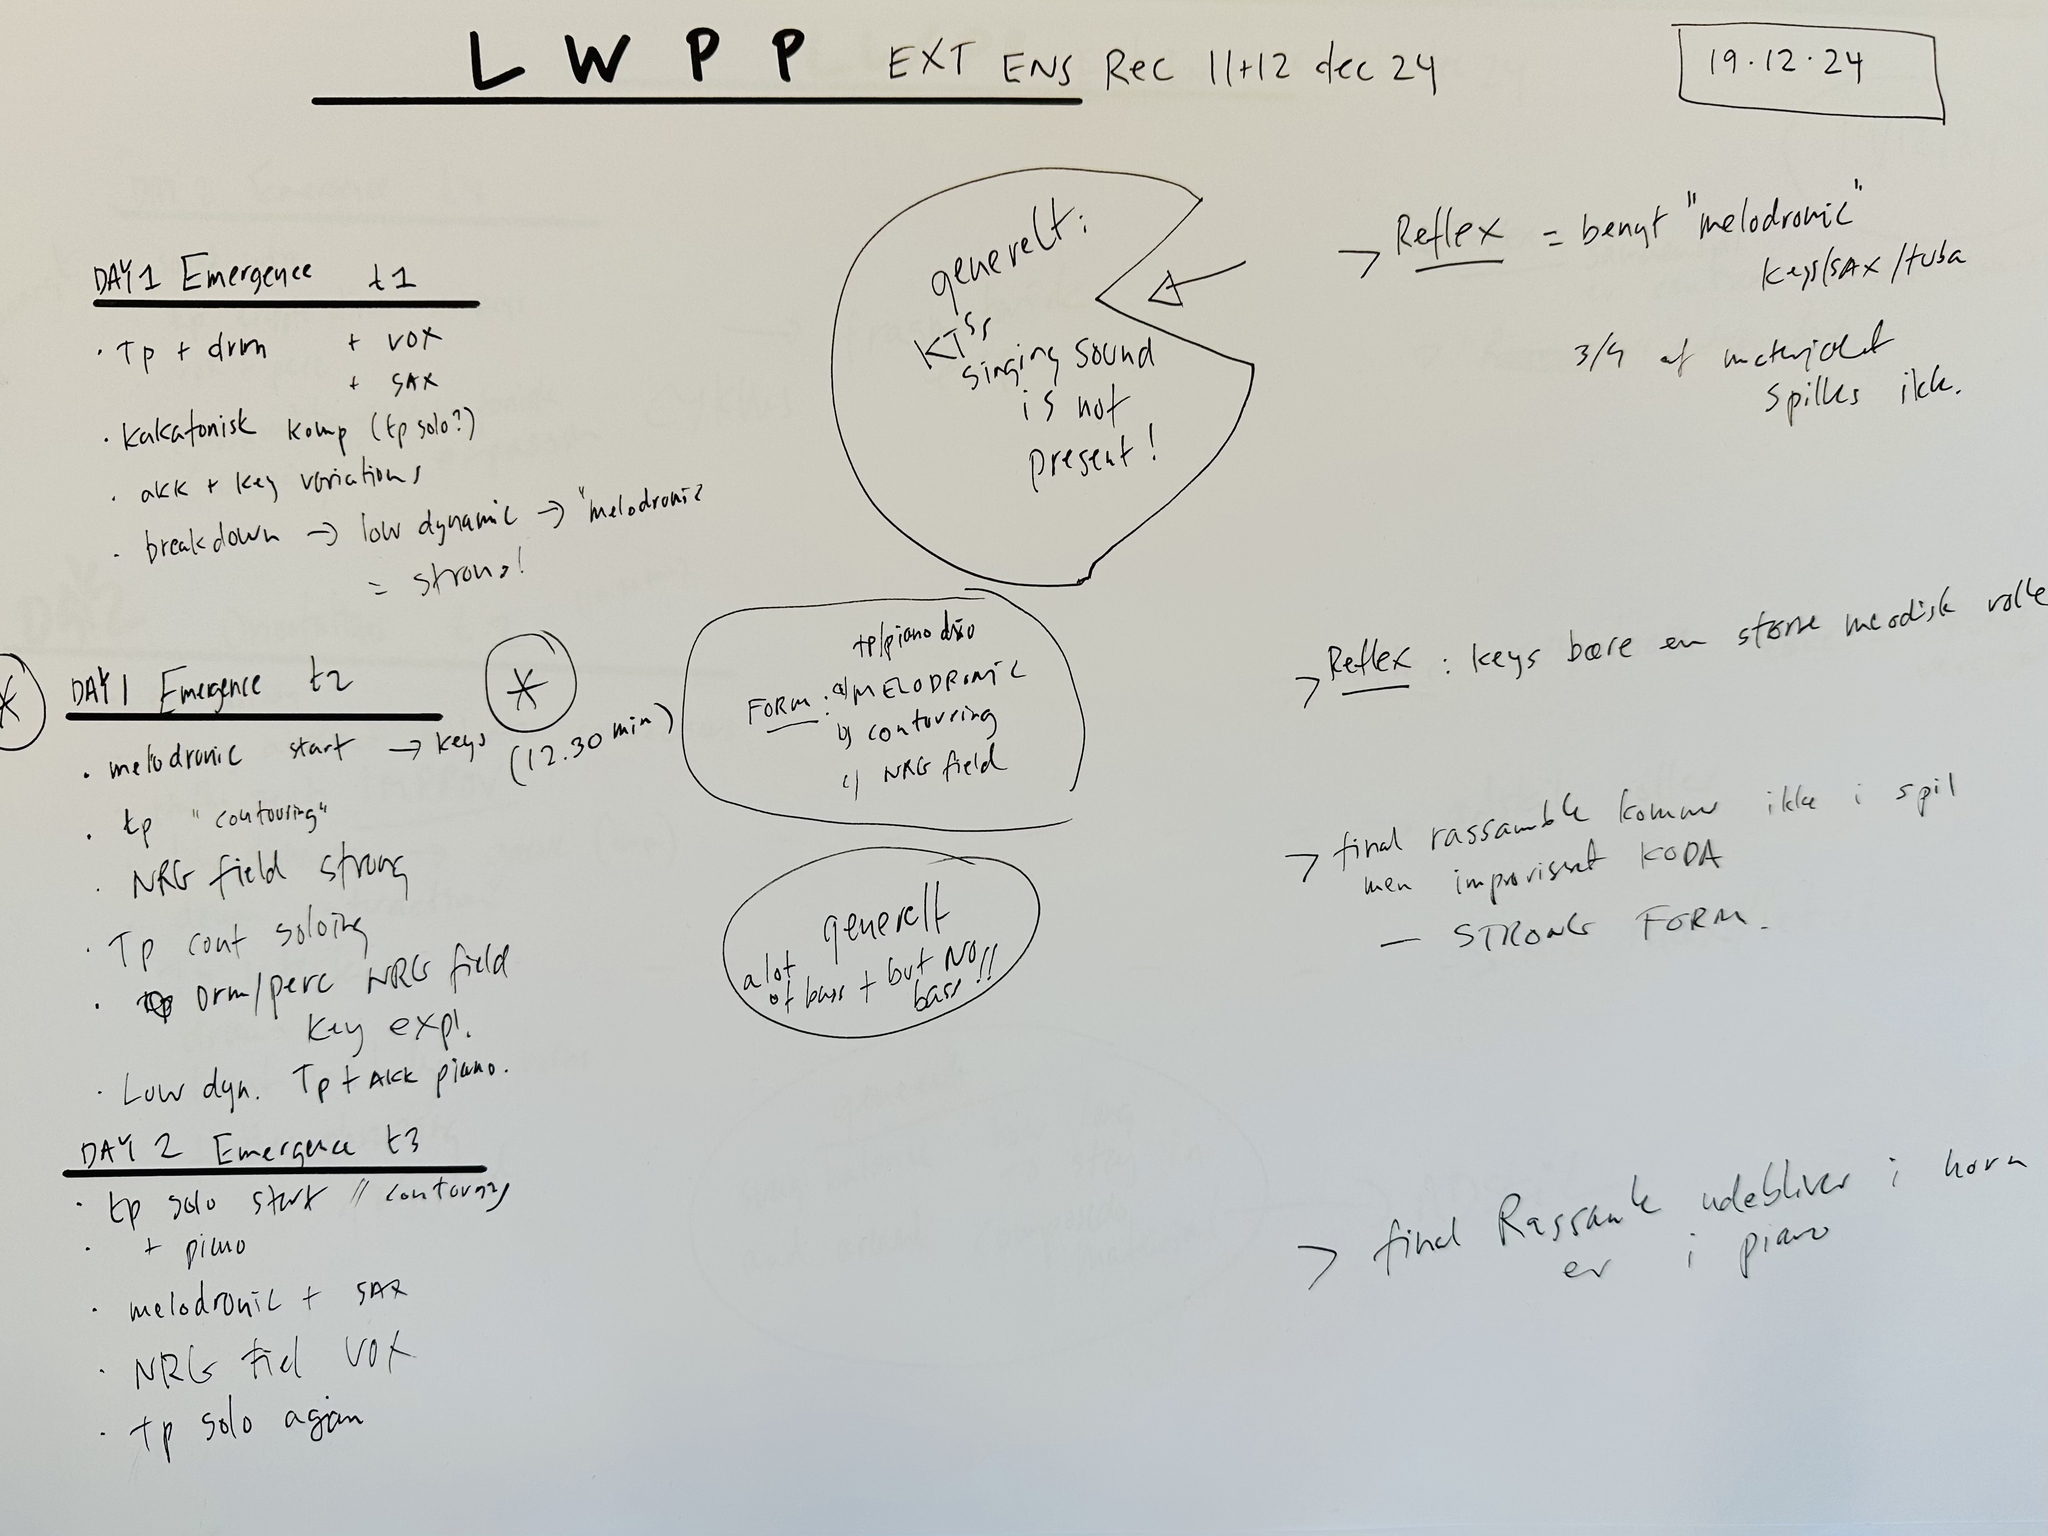 LWPP EXT ENS Rec 11+12 dec 24
19.12.24
DAY 1 Emergence t1
· Tp + drm + VOX
+ SAX
· kakatonisk komp (tp solo?)
· akk + key variations
· breakdown → low dynamic → "melodronic
= strong!
generelt:
KT's
singing sound
is not
present!
→ Reflex = benyt "melodronic"
keys/SAX/tuba
3/4 af materialet
spilles ikke.
* DAY 1 Emergence t2 *
· melodronic start → keys (12.30 min)
· tp "contouring"
· NRG field strong
· Tp cont soloing
· Drm/perc NRG field
key expl.
· Low dyn. Tp + AKK piano.
tp/piano duo
FORM: a) MELODRONIC
b) contouring
c) NRG field
generelt
a lot
of bass + but NO
bass!!
> Reflex: keys bære en større melodisk rolle
> final rassamble kommer ikke i spil
men improviseret KODA
— STRONG FORM.
DAY 2 Emergence t3
· tp solo start // contouring
· + piano
· melodronic + SAX
· NRG fiel VOX
· tp solo again
> final Rassamble udebliver i horn
er i piano